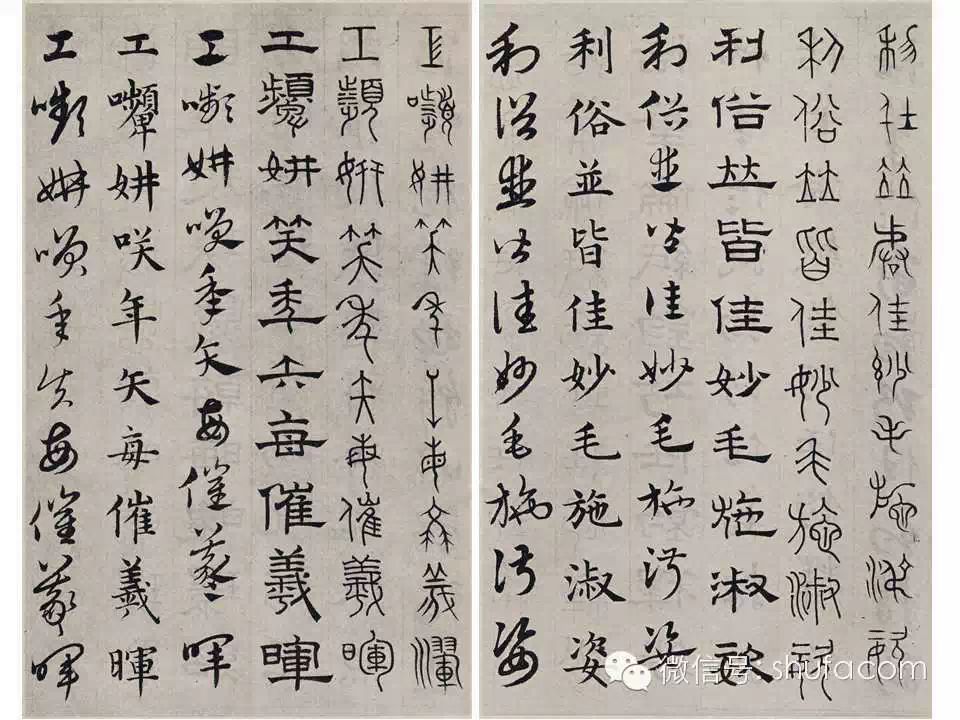 利俗並皆佳妙毛施淑姿
利俗並皆佳妙毛施淑姿
利俗並皆佳妙毛施淑姿
利俗並皆佳妙毛施淑姿
利俗並皆佳妙毛施淑姿
利俗並皆佳妙毛施淑姿
工顰妍笑年矢每催羲暉
工顰妍笑年矢每催羲暉
工嚬妍咲年矢每催羲暉
工嚬妍咲年矢每催羲暉
工顰妍咲年矢每催羲暉
工嚬妍咲年矢每催羲暉
微信号: shufacom